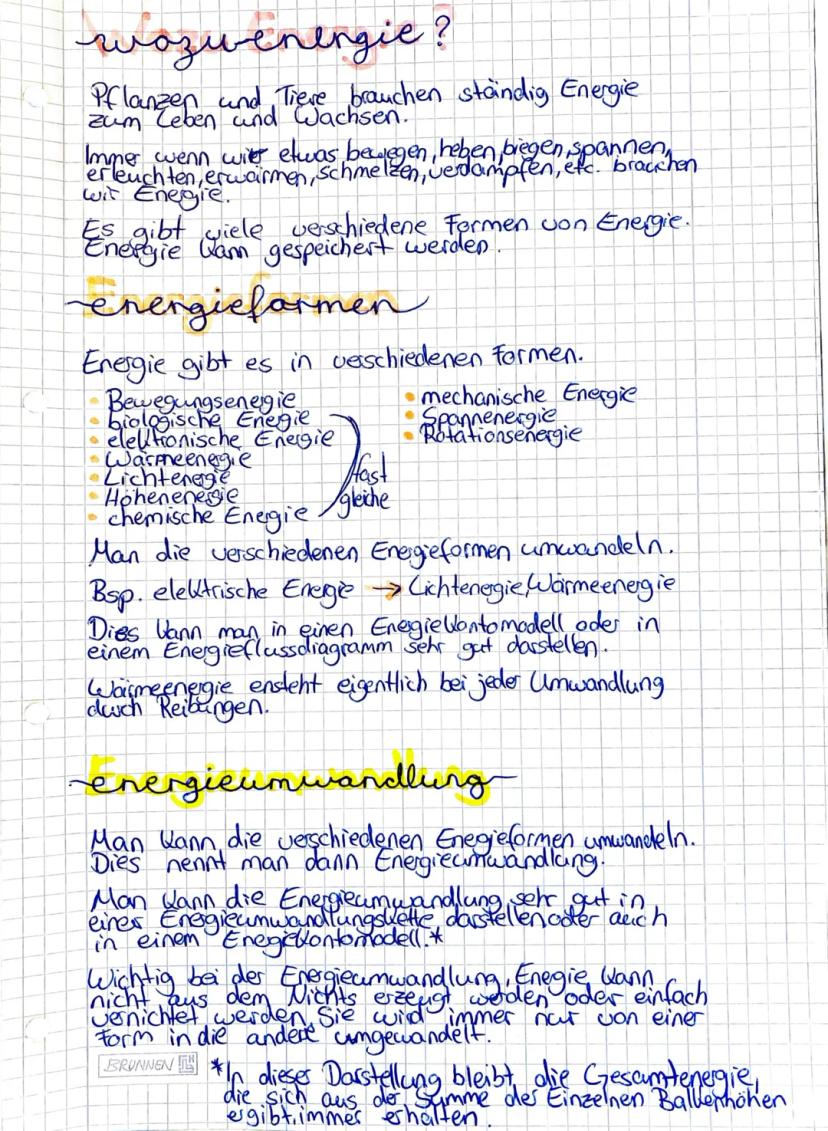 wozu energie?
Pflanzen und Tiere brauchen ständig Energie
zum Leben und Wachsen.
Immer wenn wir etwas bewegen, heben, biegen, spannen,
erleuchten, erwärmen, schmelzen, verdampfen, etc. brauchen
wir Energie.
Es gibt viele verschiedene Formen von Energie.
Energie kann gespeichert werden.
energieformen
Energie gibt es in verschiedenen Formen.
• Bewegungsenergie
• biologische Enegie
• elektronische Energie
• Wärmeenergie
• Lichtenergie
• Höhenenergie
• chemische Energie
fast
gleiche
• mechanische Energie
• Spannenergie
• Rotationsenergie
Man die verschiedenen Energieformen umwandeln.
Bsp. elektrische Energie → Lichtenegie, Wärmeenergie
Dies kann man in einen Energiekontomodell oder in
einem Energieflussdiagramm sehr gut darstellen.
Wärmeenergie ensteht eigentlich bei jeder Umwandlung
durch Reibungen.
energieumwandlung
Man kann die verschiedenen Enegieformen umwandeln.
Dies nennt man dann Energieumwandlung.
Man kann die Energieumwandlung sehr gut in
einer Energieumwandlungskette darstellen oder auch
in einem Enegiekontomodell.*
Wichtig bei der Energieumwandlung, Enegie kann
nicht aus dem Nichts erzeugt werden oder einfach
vernichtet werden, Sie wird immer nur von einer
Form in die andere umgewandelt.
BRUNNEN
*In dieser Darstellung bleibt die Gesamtenergie,
die sich aus der Summe der Einzelnen Balkenhöhen
ergibt, immer erhalten.